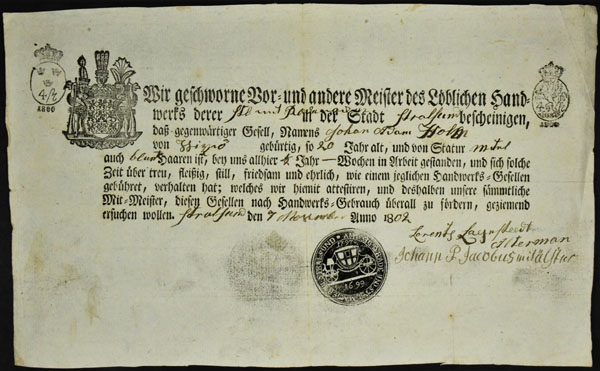 4/ß
1800
Wir geschworne Vor- und andere Meister des Löblichen Hand-
werks derer in der Stadt Stralsund bescheinigen,
daß gegenwärtiger Gesell, Namens Johan Holm
von gebürtig, so 20 Jahr alt, und von Statur mitel
auch blaun Haaren ist, bey uns allhier 4 Jahr — Wochen in Arbeit gestanden, und sich solche
Zeit über treu, fleißig, still, friedsam und ehrlich, wie einem jeglichen Handwerks-Gesellen
gebühret, verhalten hat; welches wir hiemit attestiren, und deshalben unsere sämmtliche
Mit-Meister, diesen Gesellen nach Handwerks-Gebrauch überall zu fördern, geziemend
ersuchen wollen. Stralsund den 7 November Anno 1802
Olterman
Johann P. Jacobus
1699